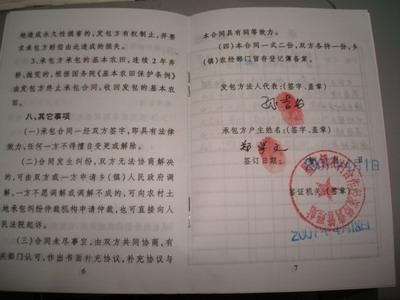 地造成永久性损害的，发包方有权制止，并要
求承包方赔偿由此造成的损失。
3.承包方承包的基本农田，连续2年弃
耕、抛荒的，根据国务院《基本农田保护条例》
由发包方终止承包合同，收回发包的基本农
田。
八、其它事项
(一)承包合同一经双方签字，即具有法律
效力，任何一方不得擅自变更或解除。
(二)合同发生纠纷，双方无法协商解决
的，可由双方或一方申请乡(镇)人民政府调
解，一方不愿调解或调解不成的，可向农村土
地承包纠纷仲裁机构申请仲裁，也可直接向人
民法院起诉。
(三)合同未尽事宜，由双方共同协商，有
关部门认可，作出书面补充协议，补充协议与
6
本合同具有同等效力。
(四)本合同一式二份，双方各待一份，乡
(镇)农经部门留存登记簿备案。
发包方法人代表：(签字、盖章)
承包方户主姓名：(签字、盖章)
签订日期：
签证机关：(签章)
7